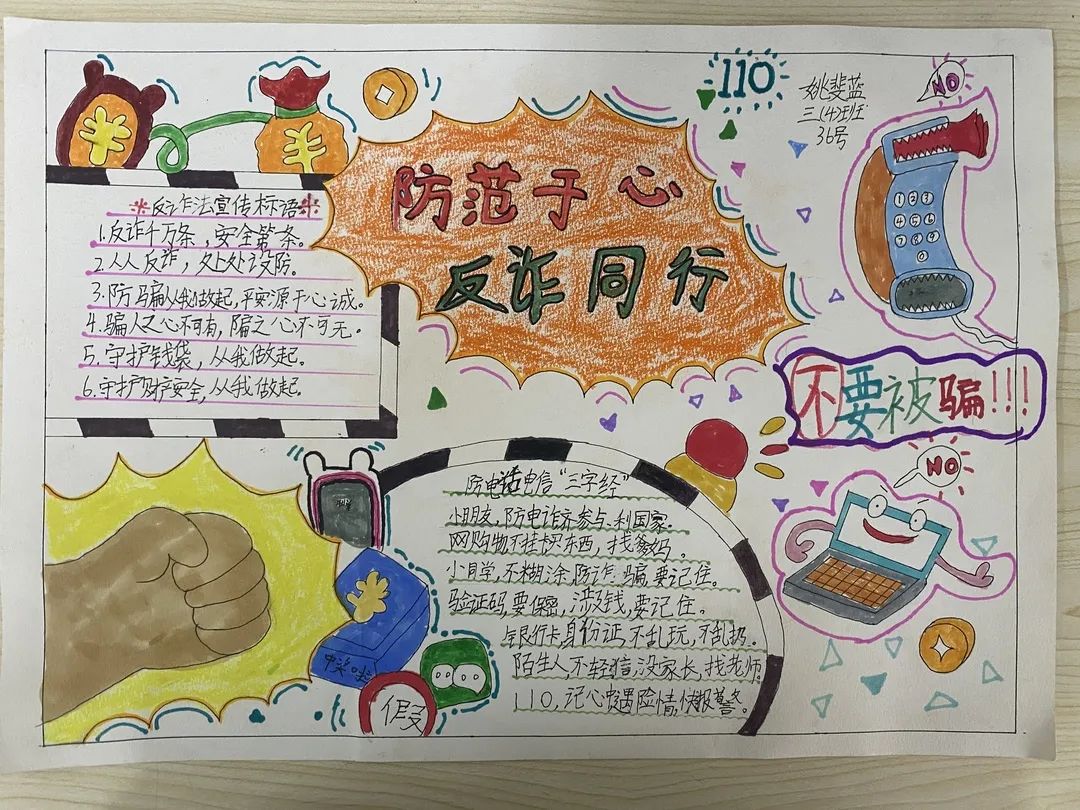 110
姚斐蓝
三(4)班
36号
NO
防范于心
反诈同行
*反诈法宣传标语*
1.反诈千万条,安全第条。
2.人人反诈,处处设防。
3.防骗从我做起,平安源于心诚。
4.骗人之心不可有,防骗之心不可无。
5.守护钱袋,从我做起。
6.守护财产安全,从我做起。
1 2 3
4 5 6
7 8 9
0
不要被骗!!!
NO
防电话电信“三字经”
小朋友,防电诈,齐参与,利国家。
网购物,不挂扣,买东西,找爹妈。
小同学,不糊涂,防诈骗,要记住。
验证码,要保密,涉及钱,要记住。
银行卡,身份证,不乱玩,不乱扔。
陌生人,不轻信,没家长,找老师。
110,记心中,遇险情,快报警。
中奖啦
假